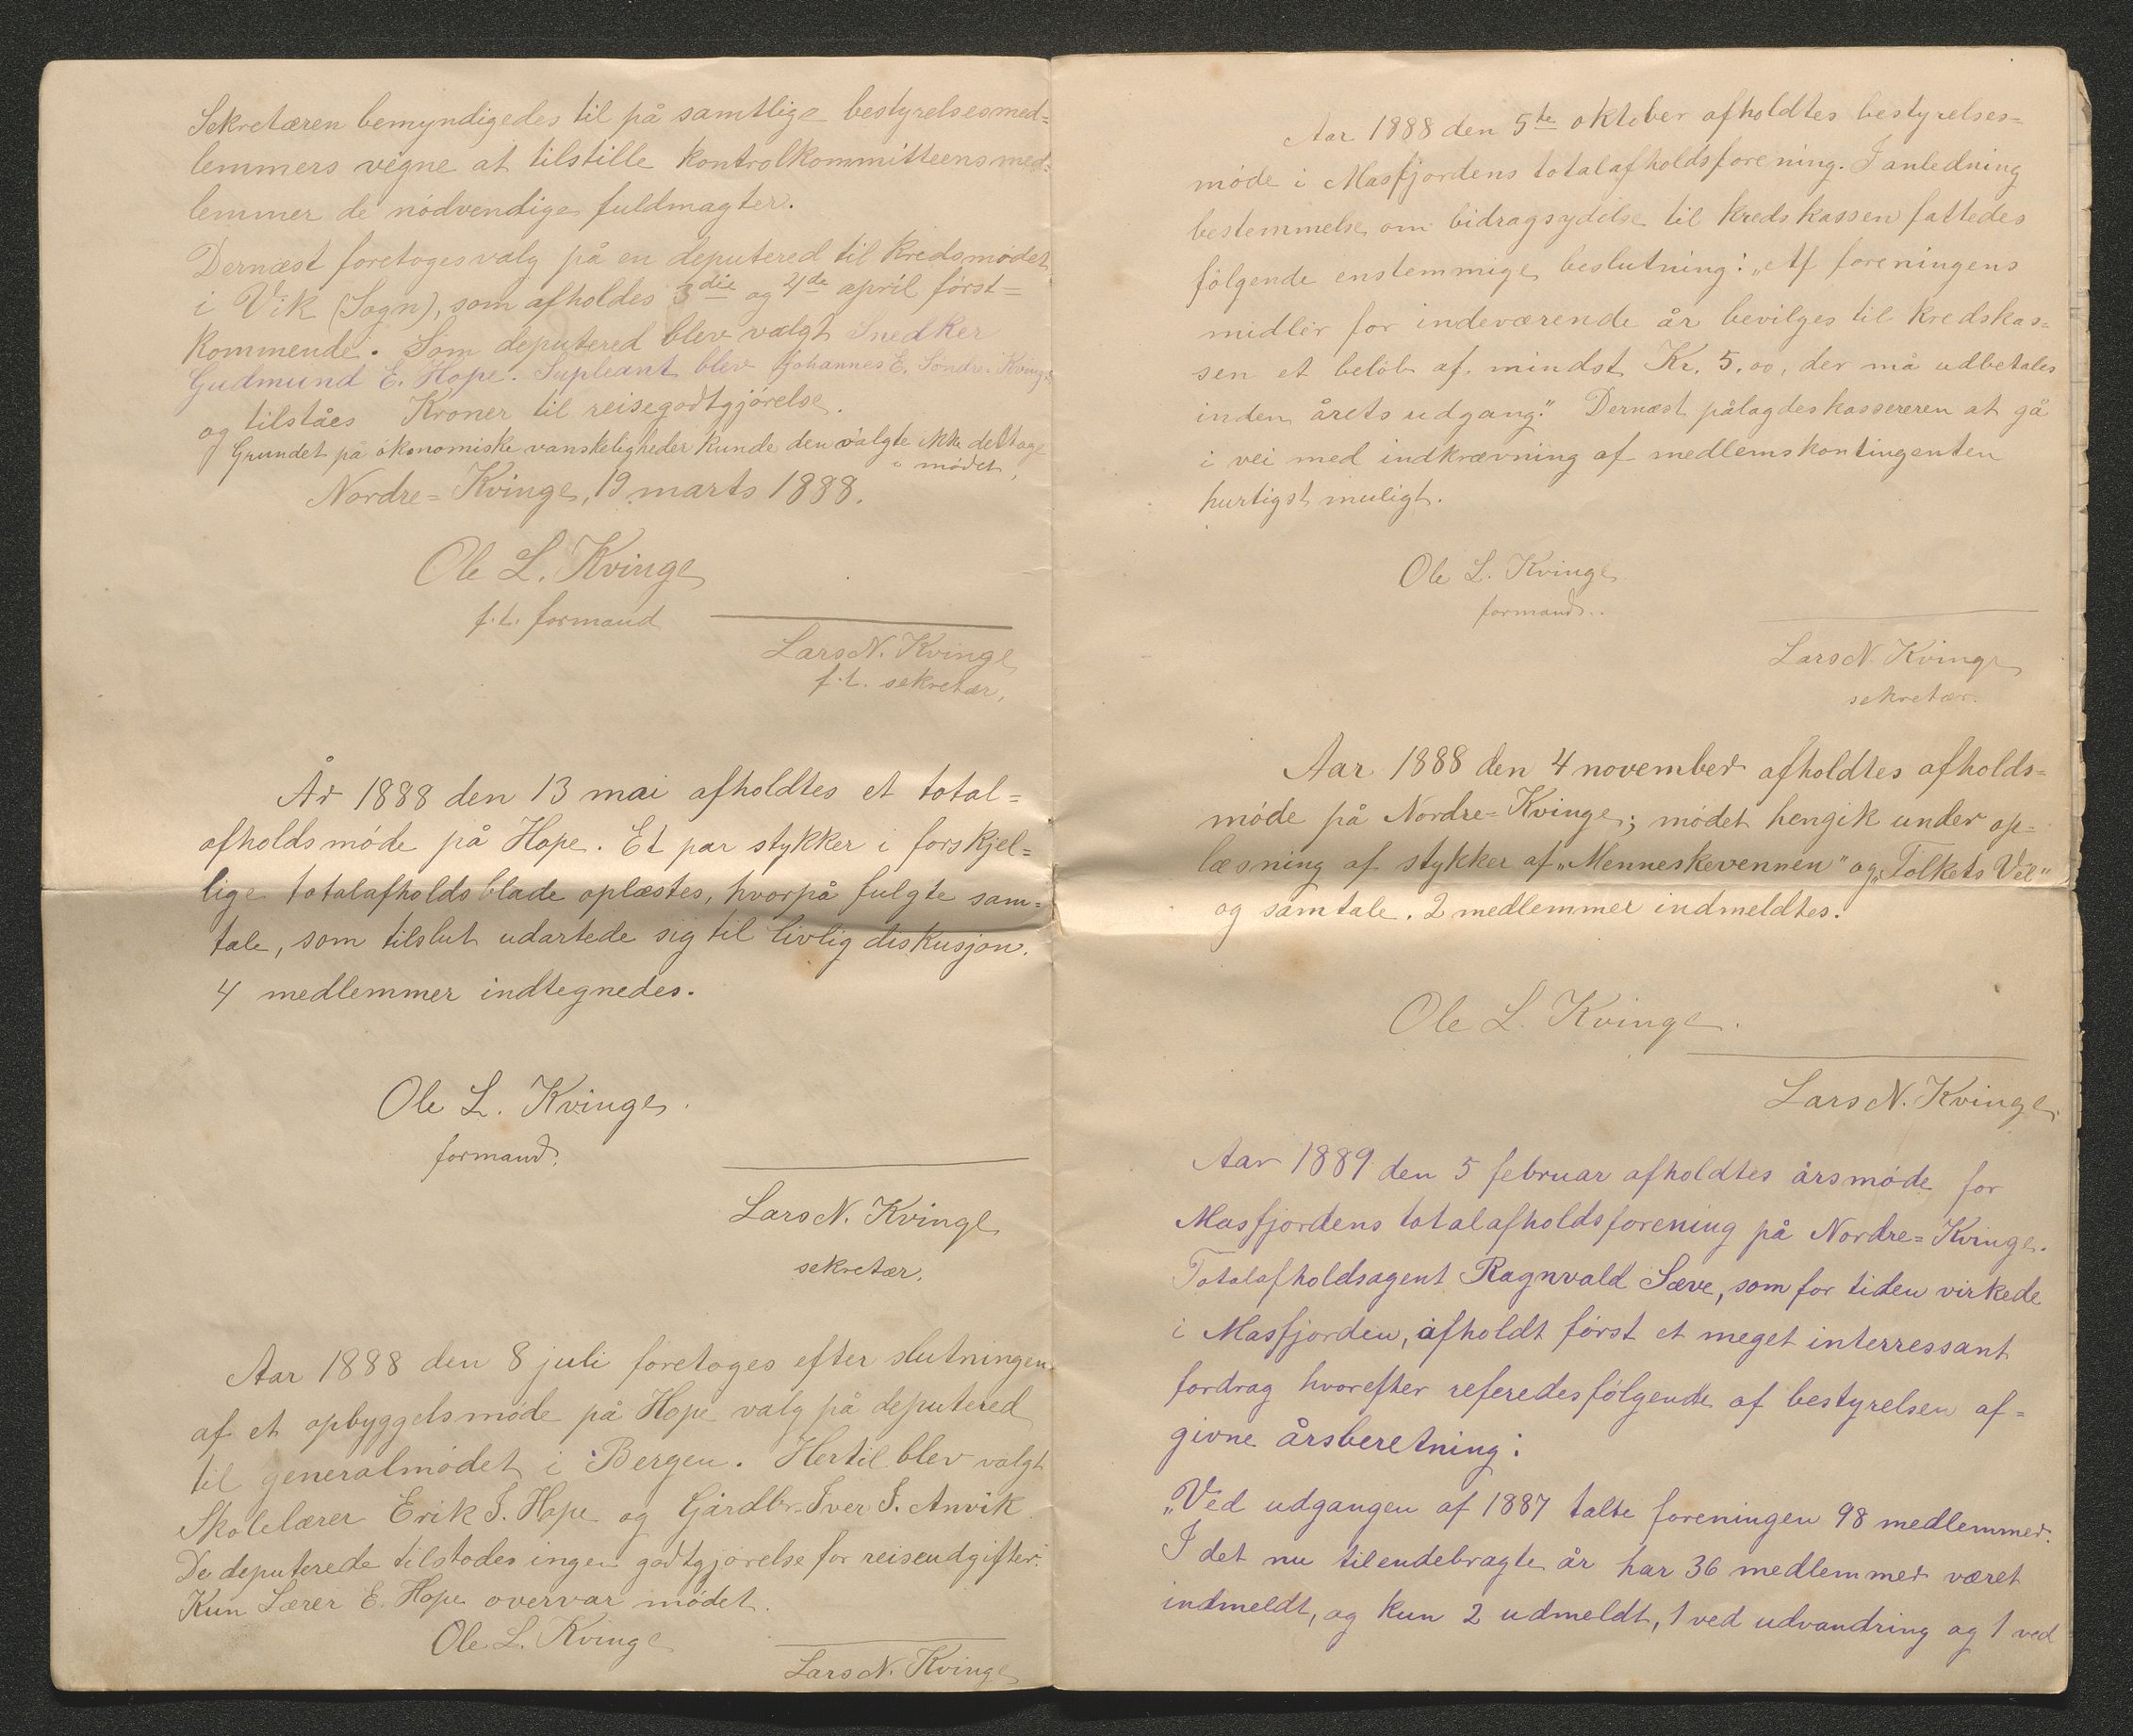 Sekretæren bemyndigedes til på samtlige bestyrelsesmed=
lemmers vegne at tilstille kontrolkommitteens med=
lemmer de nödvendige fuldmagter.
Dernæst foretoges valg på en deputered til kredsmödet
i Vik (Sogn), som afholdes 3die og 4de april först=
kommende. Som deputered blev valgt Snedker
Gudmund E. Hope. Supleant blev Johannes E. Söndre-Kvinge
og tilståes Kroner til reisegodtgjörelse.
Grundet på ökonomiske vanskeligheder kunde den valgte ikke deltage
i mödet.
Nordre=Kvinge, 19 marts 1888.
Ole L. Kvinge
f.t. formand
Lars N. Kvinge
f.t. sekretær.
År 1888 den 13 mai afholdtes et total=
afholdsmöde på Hope. Et par stykker i forskjel=
lige totalafholdsblade oplæstes, hvorpå fulgte sam=
tale, som tilslut udartede sig til livlig diskusjon.
4 medlemmer indtegnedes.
Ole L. Kvinge.
formand.
Lars N. Kvinge
sekretær.
Aar 1888 den 8 juli foretoges efter slutningen
af et opbyggelsmöde på Hope valg på deputered
til generalmödet i Bergen. Hertil blev valgt
Skolelærer Erik I. Hope og Gårdbr. Iver I. Anvik.
De deputerede tilstodes ingen godtgjörelse for reiseudgifter.
Kun Lærer E. Hope overvar mödet.
Ole L. Kvinge
Lars N. Kvinge
Aar 1888 den 5te oktober afholdtes bestyrelses=
möde i Masfjordens totalafholdsforening. I anledning
bestemmelse om bidragsydelse til kredskassen fattedes
fölgende enstemmige beslutning: „Af foreningens
midler for indeværende år bevilges til kredskas=
sen et belöb af mindst Kr. 5,00, der må udbetales
inden årets udgang." Dernæst pålagdes kassereren at gå
i vei med indkrævning af medlemskontingenten
hurtigst muligt.
Ole L. Kvinge
formand.
Lars N. Kvinge
sekretær.
Aar 1888 den 4 november afholdtes afholds=
möde på Nordre=Kvinge; mödet hengik under op=
læsning af stykker af „Menneskevennen" og „Folkets Vel"
og samtale. 2 medlemmer indmeldtes.
Ole L. Kvinge.
Lars N. Kvinge.
Aar 1889 den 5 februar afholdtes årsmöde for
Masfjordens totalafholdsforening på Nordre=Kvinge.
Totalafholdsagent Ragnvald Sæve, som for tiden virkede
i Masfjorden, afholdt först et meget interressant
fordrag hvorefter referedes fölgende af bestyrelsen af=
givne årsberetning:
„Ved udgangen af 1887 talte foreningen 98 medlemmer.
I det nu tilendebragte år har 36 medlemmer været
indmeldt, og kun 2 udmeldt, 1 ved udvandring og 1 ved